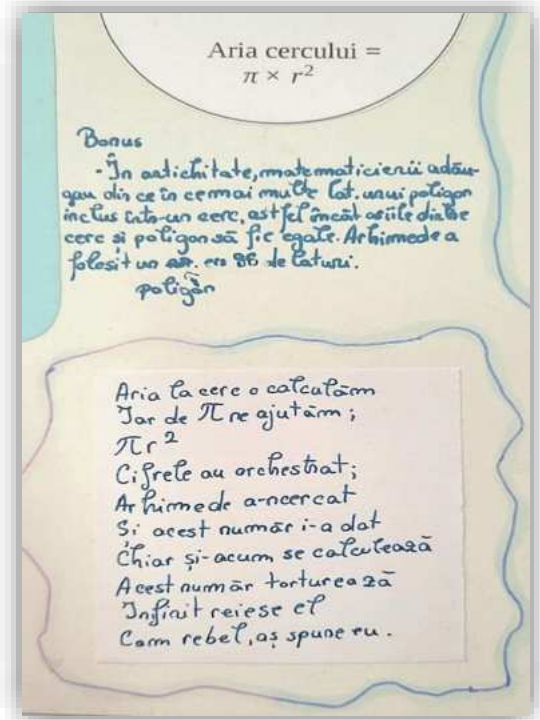 Aria cercului =
π × r²
Bonus
- În antichitate, matematicienii adău-
gau din ce în ce mai multe lat. unui poligon
inclus într-un cerc, astfel încât ariile dintre
cerc și poligon să fie egale. Arhimede a
folosit un cu 96 de laturi.
poligon
Aria la cerc o calculăm
Iar de π ne ajutăm;
πr²
Cifrele au orchestrat;
Arhimede a-ncercat
Și acest număr i-a dat
Chiar și-acum se calculează
Acest număr torturează
Infinit reiese el
Cam rebel, aș spune eu.